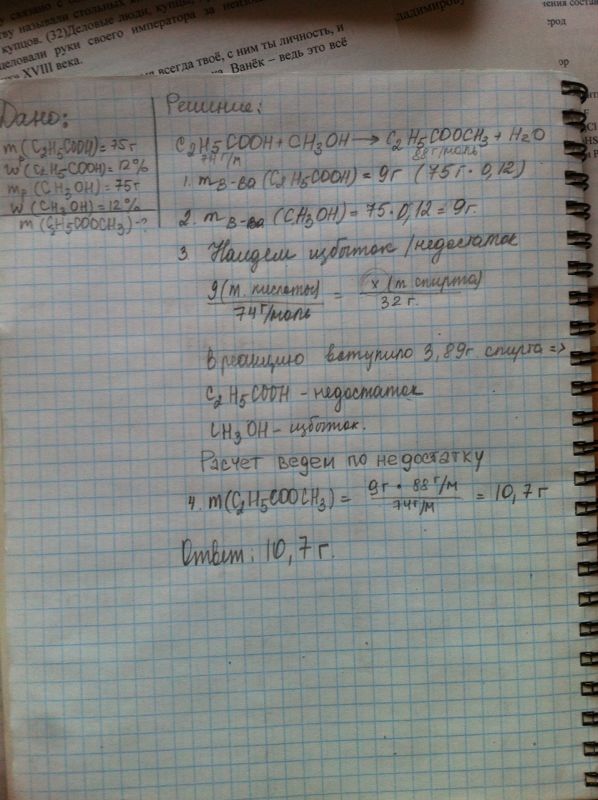 купцов. (32)Деловые люди, купцы,
деловали руки своего императора за
XVIII века.
всегда твоё, с ним ты личность, и
Ванёк – ведь это всё
ладимирову
род
ор
Дано:
m р (C2H5COOH) = 75г
w (C2H5COOH) = 12%
mр (CH3OH) = 75г
w (CH3OH) = 12%
m (C2H5COOCH3) - ?
Решение:
C2H5COOH + CH3OH → C2H5COOCH3 + H2O
74 г/м 88 г/моль
1. m в-ва (C2H5COOH) = 9г (75г · 0,12)
2. m в-ва (CH3OH) = 75 · 0,12 = 9г.
3 Найдем избыток / недостаток
9 (m. кислоты) / 74 г/моль = x (m спирта) / 32 г.
В реакцию вступило 3,89г спирта =>
C2H5COOH - недостаток
CH3OH - избыток.
Расчет ведем по недостатку
4. m (C2H5COOCH3) = 9г · 88 г/м / 74 г/м = 10,7 г
Ответ: 10,7 г.